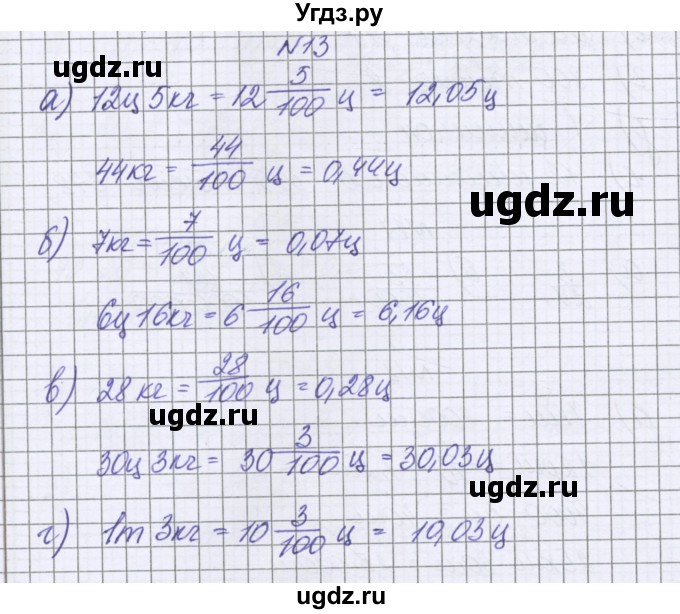 Угдз.ру
№13
ugdz.ru
а) 12ц 5кг = 12 5/100 ц = 12,05ц
44кг = 44/100 ц = 0,44ц
ugdz.ru
б) 7кг = 7/100 ц = 0,07ц
6ц 16кг = 6 16/100 ц = 6,16ц
в) 28кг = 28/100 ц = 0,28ц
ugdz.ru
30ц 3кг = 30 3/100 ц = 30,03ц
ugdz.ru
г) 1т 3кг = 10 3/100 ц = 10,03ц
ugdz.ru